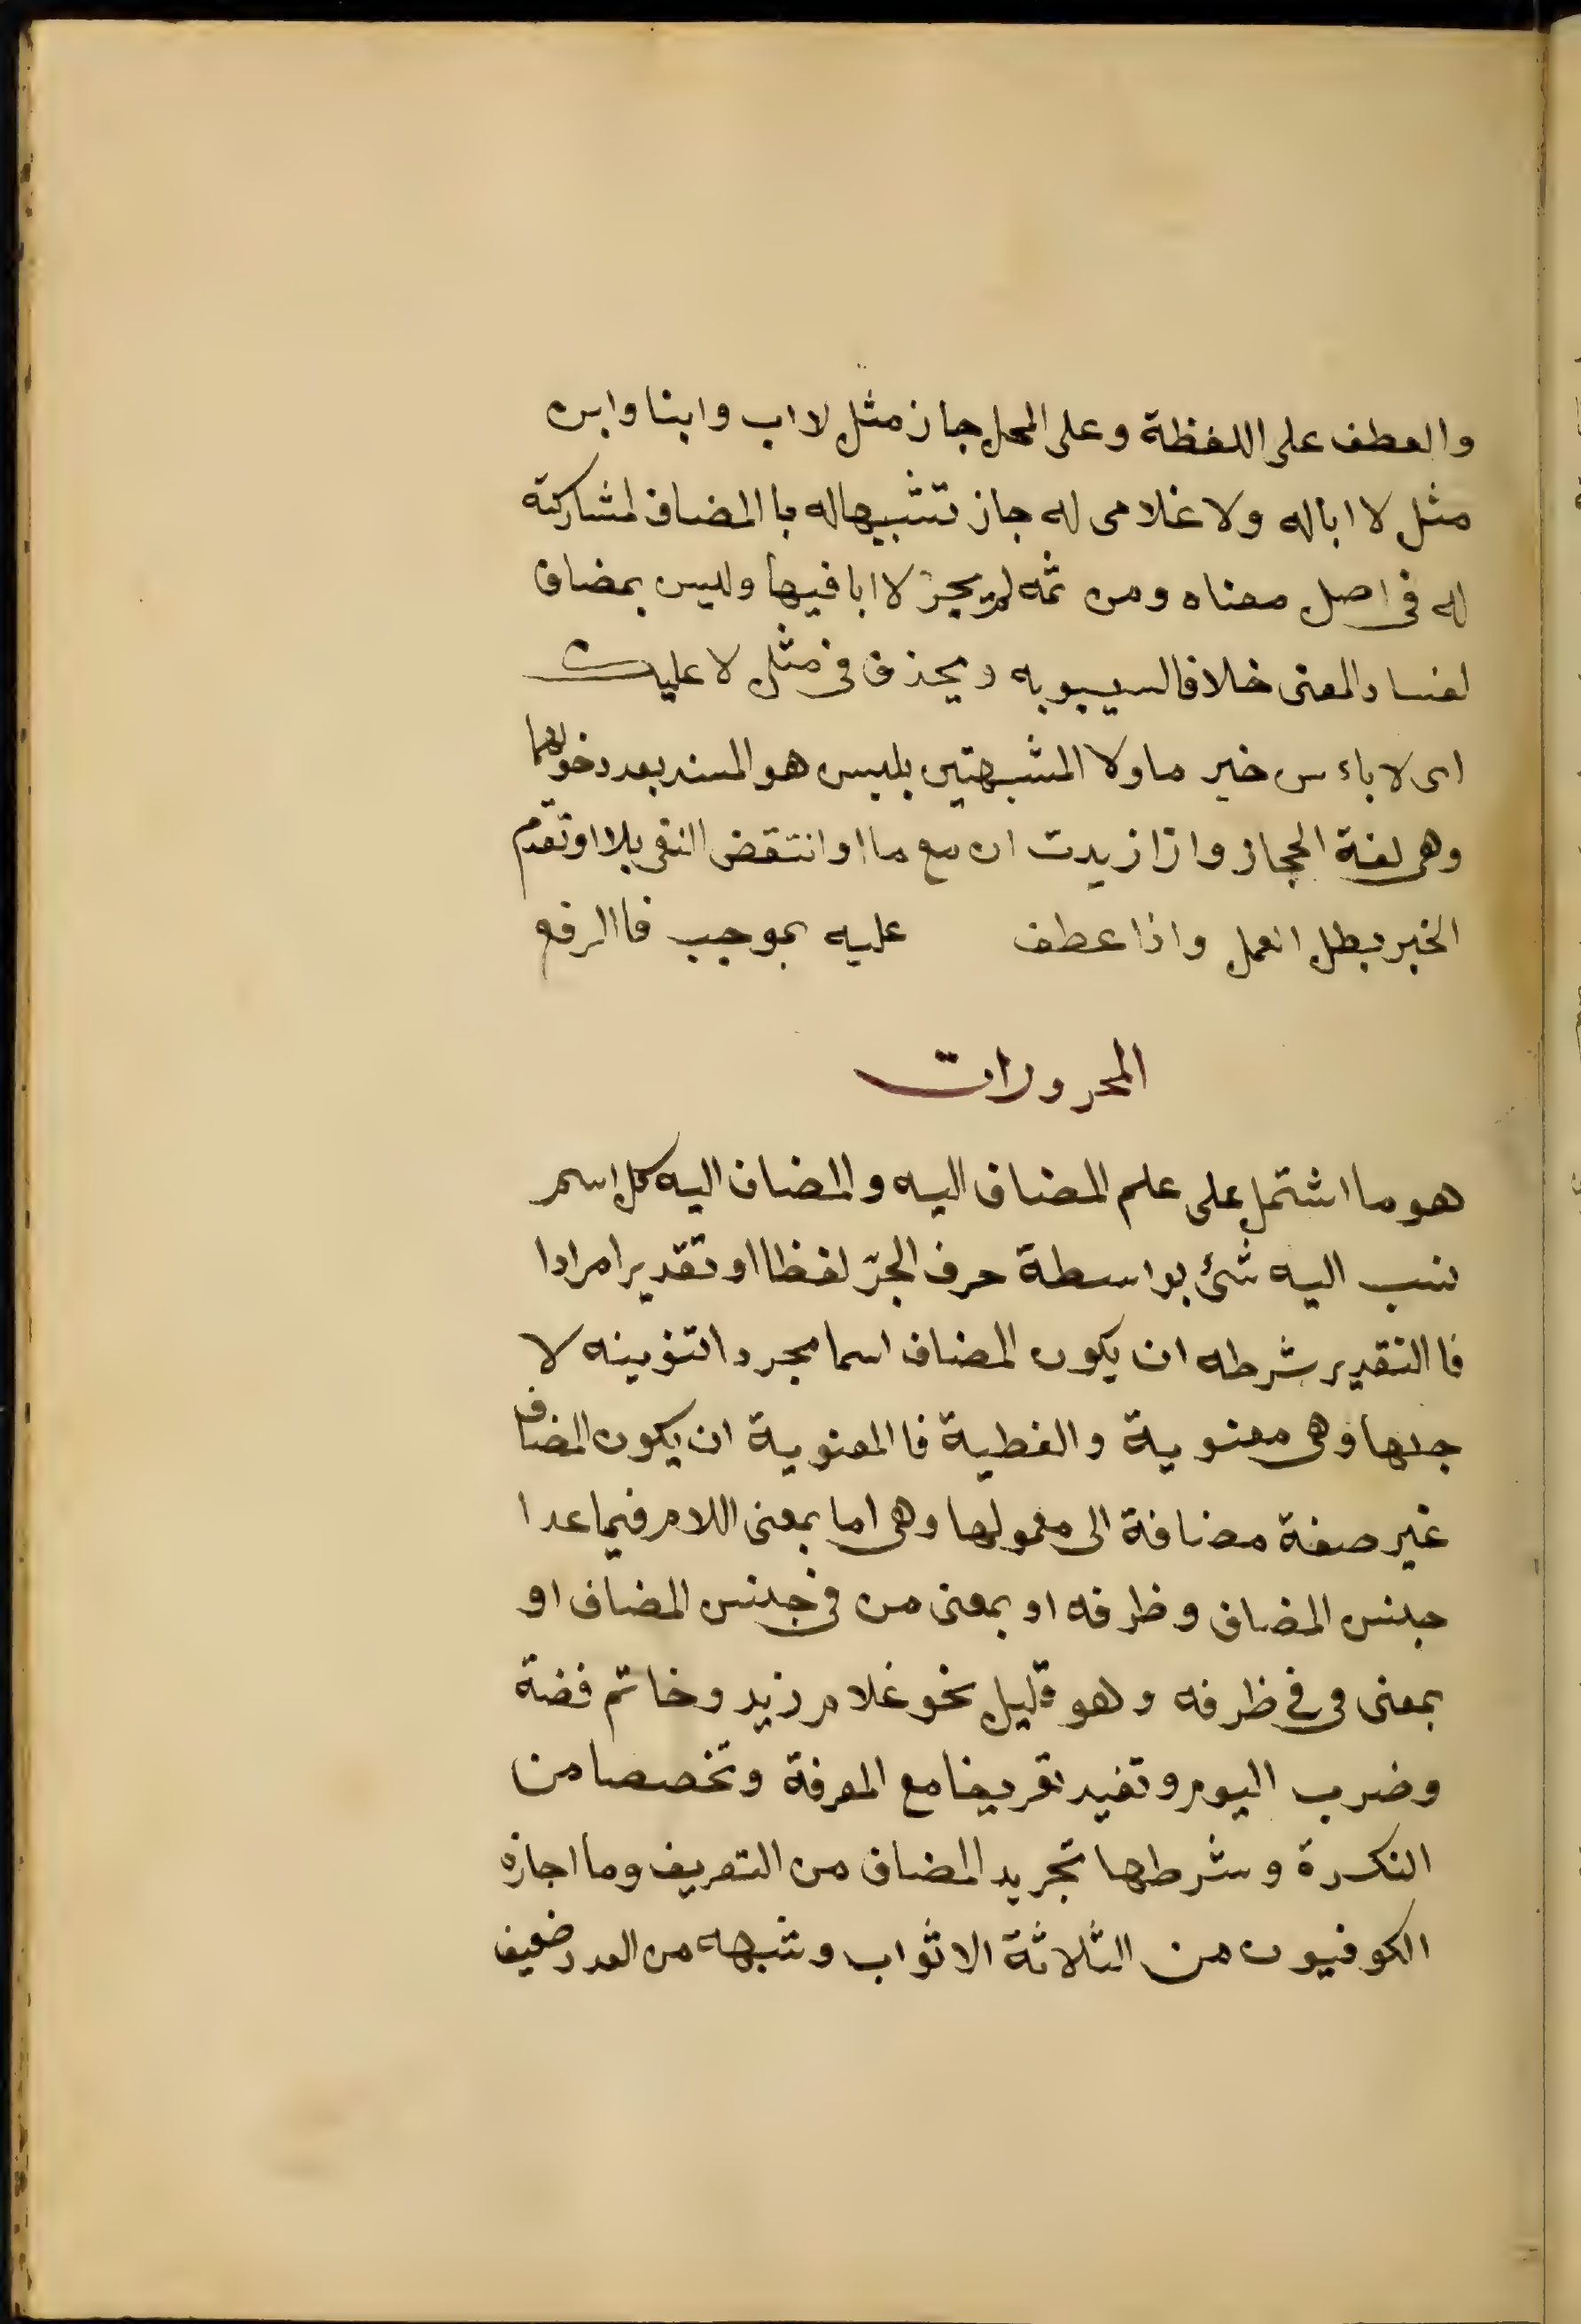 والعطف على اللفظة وعلى المحل جاز مثل لا اب وابنا وابن
مثل لا اباله ولا غلامى له جاز تشبيها له باالمضاف لمشاركته
له فى اصل معناه ومن ثمه لم يجز لا ابا فيها وليس بمضاف
لفساد المعنى خلافا لسيبويه ويحذف فى مثل لا عليك
اى لا باءس خبر ما ولا المشبهتين بليس هو المسند بعد دخولهما
وهى لغة الحجاز واذا زيدت ان مع ما او انتقض النفى بالا او تقدم
الخبر بطل العمل واذا عطف عليه بموجب فاالرفع
المحرورات
هو ما اشتمل على علم المضاف اليه والمضاف اليه كل اسم
نسب اليه شئ بواسطة حرف الجرّ لفظا او تقديرا مرادا
فاالتقدير شرطه ان يكون المضاف اسما مجردا تنوينه لا
جلها وهى معنوية والفطية فاالمعنوية ان يكون المضاف
غير صفة مضافة الى معمولها وهى اما بمعنى اللام فيما عدا
جنس المضاف وظرفه او بمعنى من فى جنس المضاف او
بمعنى فى فى ظرفه وهو قليل نحو غلام زيد وخاتم فضة
وضرب اليوم وتفيد تعريفا مع المعرفة وتخصصا من
النكرة وشرطها تجريد المضاف من التعريف وما اجازه
الكوفيون من الثلاثة الاثواب وشبهه من العدد ضعيف